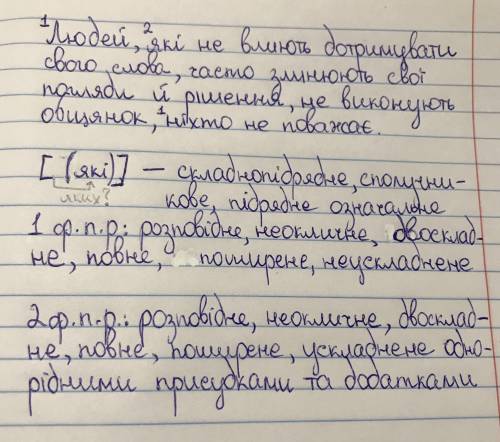 ¹Людей, ²які не вміють дотримувати
свого слова, часто змінюють свої
погляди й рішення, не виконують
обіцянок, ¹ніхто не поважає.
[ (які)] – складнопідрядне, сполучни-
яких?
кове, підрядне означальне
1 ф.п.р.: розповідне, неокличне, двосклад-
не, повне, поширене, неускладнене
2 ф.п.р.: розповідне, неокличне, двосклад-
не, повне, поширене, ускладнене одно-
рідними присудками та додатками